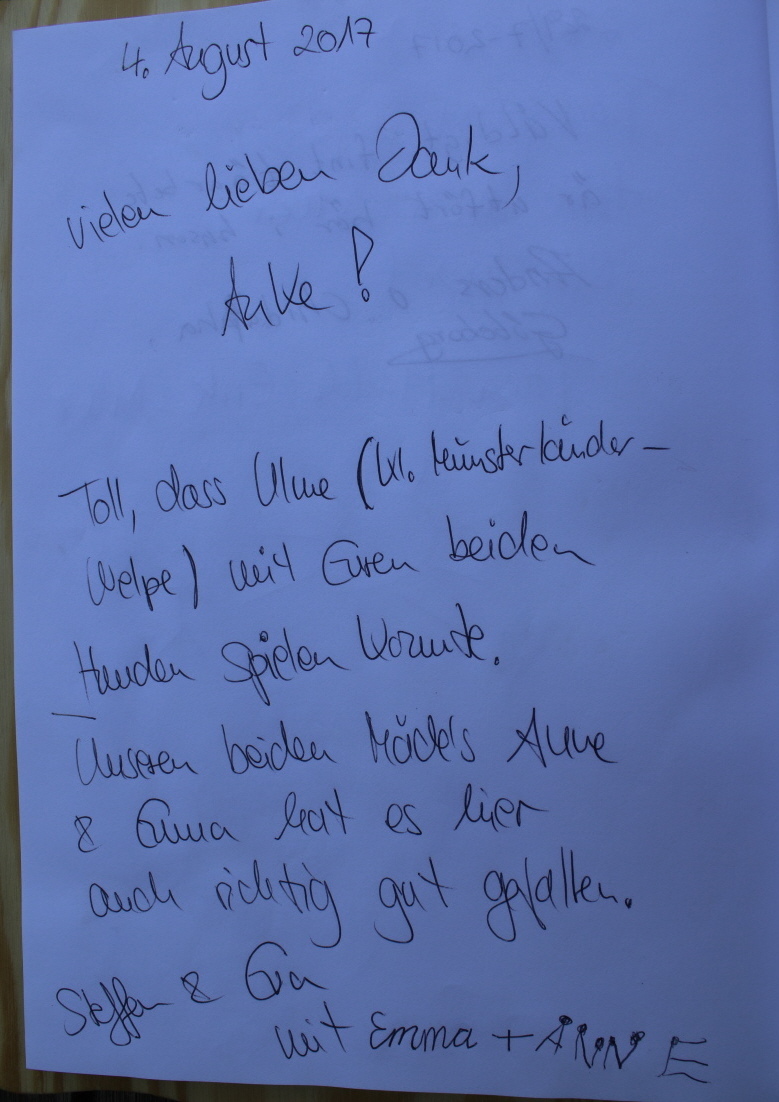 4. August 2017
vielen lieben Dank,
Anke!
Toll, dass Ulme (Kl. Münsterländer-
Welpe) mit Euren beiden
Hunden spielen konnte.
Unseren beiden Mädels Anne
& Emma hat es hier
auch richtig gut gefallen.
Steffen & Eva
mit Emma + ANNE